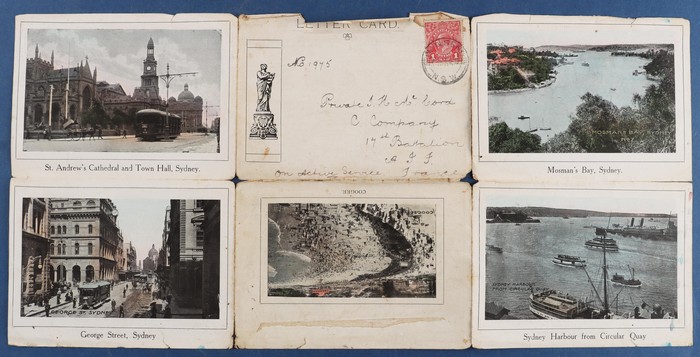 LETTER CARD.
No 1975
Private J
C Company
17th Batallion
A.I.F.
On Active Service France
N.S.W
St. Andrew's Cathedral and Town Hall, Sydney.
MOSMAN'S BAY, SYDNEY
N.S.W.
Mosman's Bay, Sydney.
GEORGE ST. SYDNEY
George Street, Sydney.
COOGEE
COOGEE
SYDNEY HARBOUR
FROM CIRCULAR QUAY
Sydney Harbour from Circular Quay